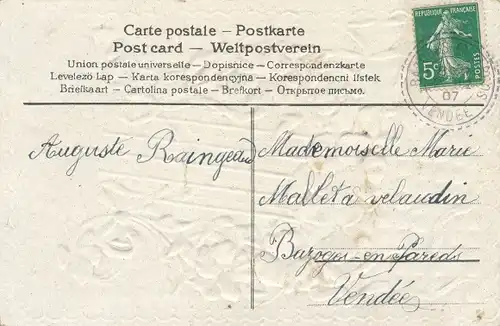 Carte postale — Postkarte
Post card — Weltpostverein
Union postale universelle — Dopisnice — Correspondenzkarte
Levelező Lap — Karta korespondencyjna — Korespondencni listek
Briefkaart — Cartolina postale — Brefkort — Открытое письмо.
REPUBLIQUE FRANÇAISE
5c
POSTES
07
VENDEE
Auguste Raingeau
Mademoiselle Marie
Mallet a velaudin
Bazoges-en-Pareds
Vendée